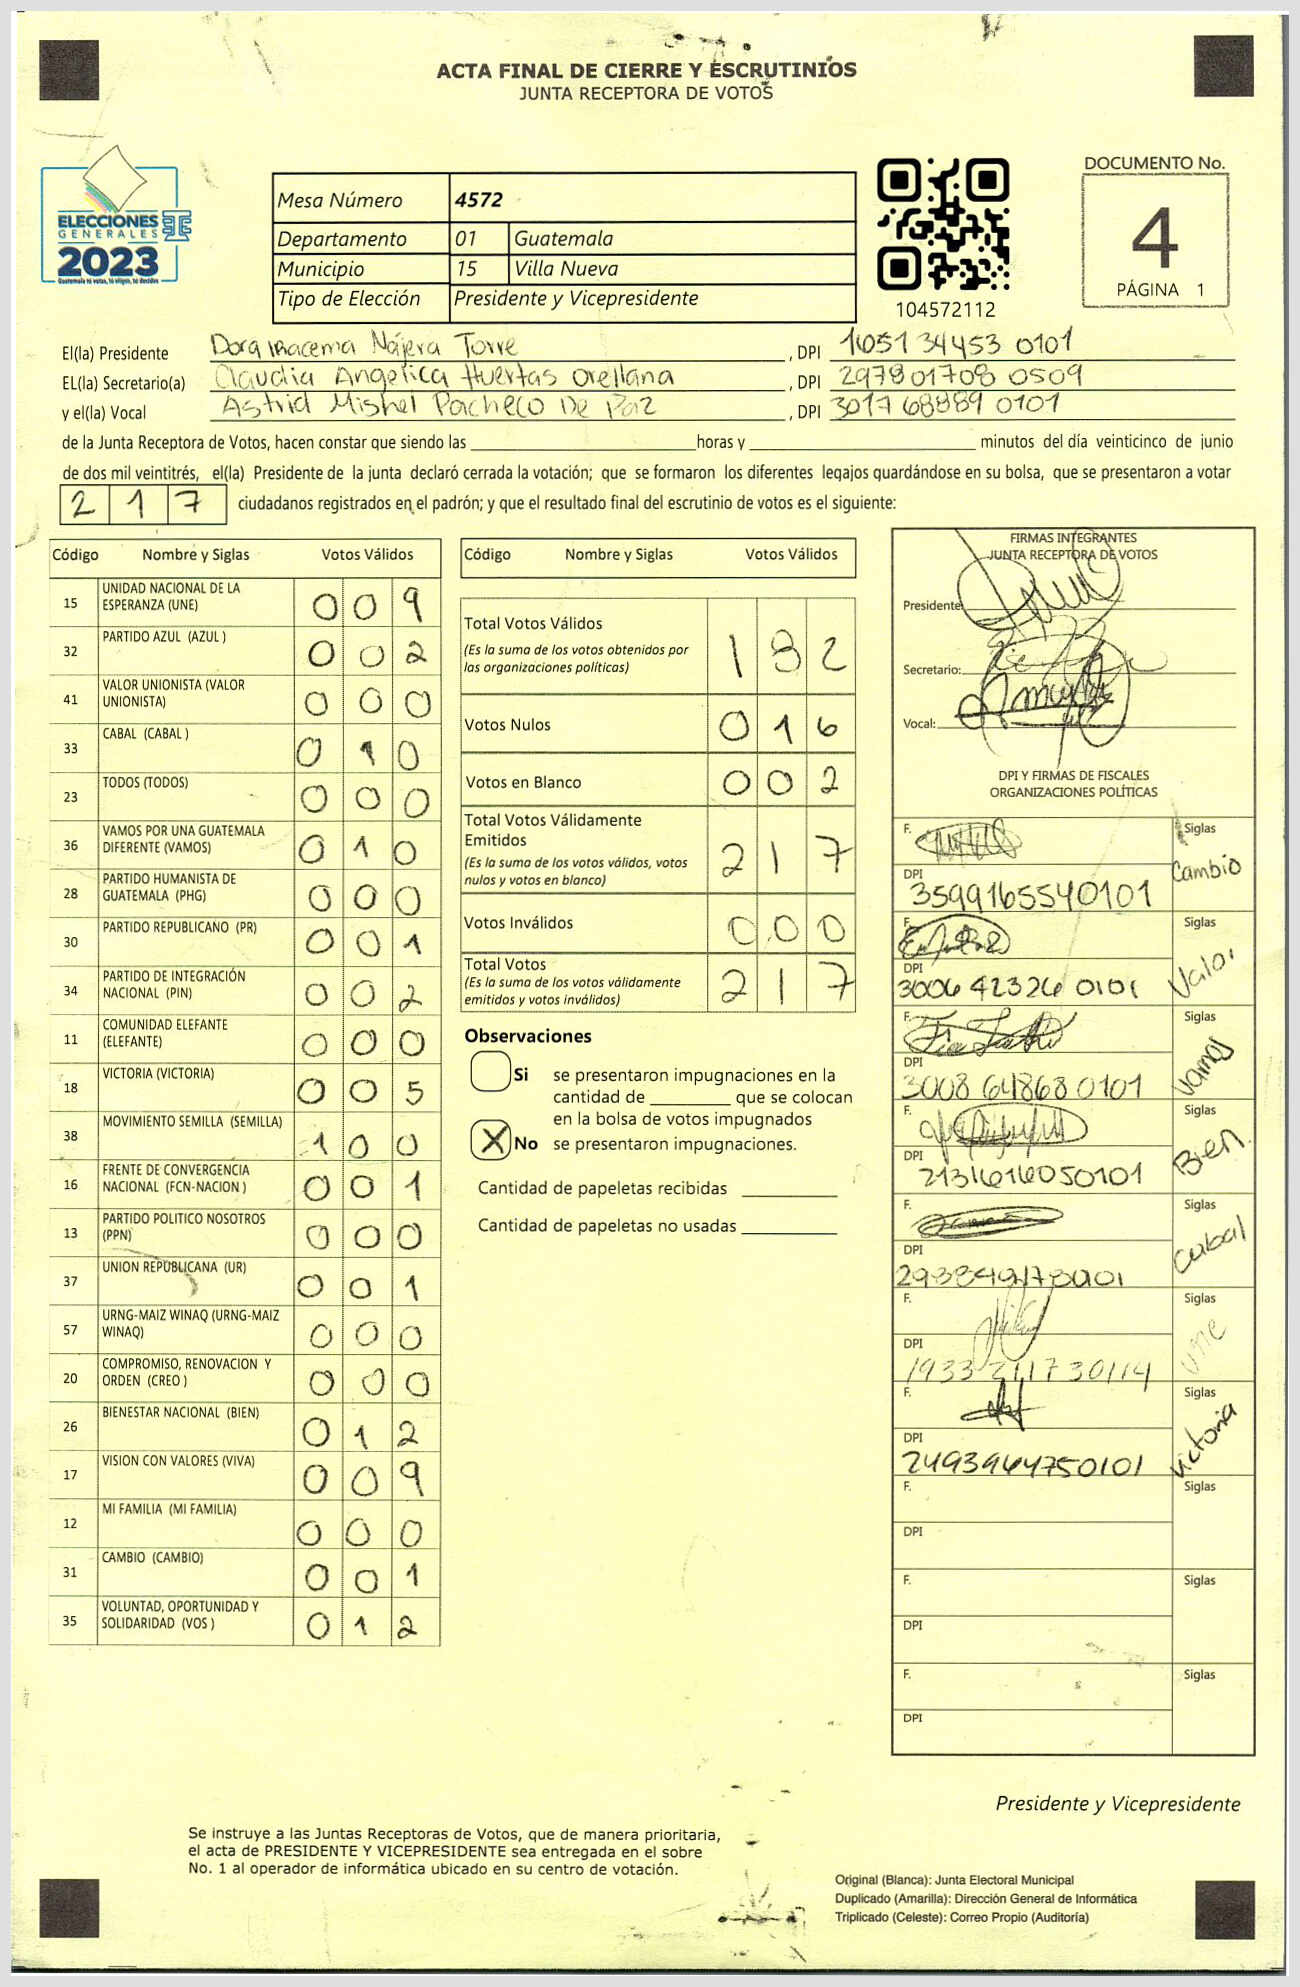 ACTA FINAL DE CIERRE Y ESCRUTINIOS
JUNTA RECEPTORA DE VOTOS
ELECCIONES
GENERALES
2023
Guatemala tú votas, tú eliges, tú decides
Mesa Número 4572
Departamento 01 Guatemala
Municipio 15 Villa Nueva
Tipo de Elección Presidente y Vicepresidente
104572112
DOCUMENTO No.
4
PÁGINA 1
El(la) Presidente Dora Iracema Nájera Torre , DPI 1651 34453 0101
EL(la) Secretario(a) Claudia Angelica Huertas Orellana , DPI 297801708 0509
y el(la) Vocal Astrid Mishel Pacheco De Paz , DPI 3017 68889 0101
de la Junta Receptora de Votos, hacen constar que siendo las horas y minutos del día veinticinco de junio
de dos mil veintitrés, el(la) Presidente de la junta declaró cerrada la votación; que se formaron los diferentes legajos quardándose en su bolsa, que se presentaron a votar
217 ciudadanos registrados en el padrón; y que el resultado final del escrutinio de votos es el siguiente:
Código Nombre y Siglas Votos Válidos
15 UNIDAD NACIONAL DE LA ESPERANZA (UNE) 009
32 PARTIDO AZUL (AZUL ) 002
41 VALOR UNIONISTA (VALOR UNIONISTA) 000
33 CABAL (CABAL ) 010
23 TODOS (TODOS) 000
36 VAMOS POR UNA GUATEMALA DIFERENTE (VAMOS) 010
28 PARTIDO HUMANISTA DE GUATEMALA (PHG) 000
30 PARTIDO REPUBLICANO (PR) 001
34 PARTIDO DE INTEGRACIÓN NACIONAL (PIN) 002
11 COMUNIDAD ELEFANTE (ELEFANTE) 000
18 VICTORIA (VICTORIA) 005
38 MOVIMIENTO SEMILLA (SEMILLA) 100
16 FRENTE DE CONVERGENCIA NACIONAL (FCN-NACION ) 001
13 PARTIDO POLITICO NOSOTROS (PPN) 000
37 UNION REPUBLICANA (UR) 001
57 URNG-MAIZ WINAQ (URNG-MAIZ WINAQ) 000
20 COMPROMISO, RENOVACION Y ORDEN (CREO ) 000
26 BIENESTAR NACIONAL (BIEN) 012
17 VISION CON VALORES (VIVA) 009
12 MI FAMILIA (MI FAMILIA) 000
31 CAMBIO (CAMBIO) 001
35 VOLUNTAD, OPORTUNIDAD Y SOLIDARIDAD (VOS ) 012
Código Nombre y Siglas Votos Válidos
Total Votos Válidos 182
(Es la suma de los votos obtenidos por
las organizaciones políticas)
Votos Nulos 016
Votos en Blanco 002
Total Votos Válidamente
Emitidos 217
(Es la suma de los votos válidos, votos
nulos y votos en blanco)
Votos Inválidos 000
Total Votos 217
(Es la suma de los votos válidamente
emitidos y votos inválidos)
Observaciones
Si se presentaron impugnaciones en la
cantidad de que se colocan
en la bolsa de votos impugnados
X No se presentaron impugnaciones.
Cantidad de papeletas recibidas
Cantidad de papeletas no usadas
FIRMAS INTEGRANTES
JUNTA RECEPTORA DE VOTOS
Presidente:
Secretario:
Vocal:
DPI Y FIRMAS DE FISCALES
ORGANIZACIONES POLÍTICAS
F. Siglas Cambio
DPI 3599165540101
F. Siglas Valor
DPI 3006 42326 0101
F. Siglas Vamos
DPI 3008 64868 0101
F. Siglas Bien
DPI 2131616050101
F. Siglas Cabal
DPI
F. Siglas une
DPI
F. Siglas Victoria
DPI 2493964750101
F. Siglas
DPI
F. Siglas
DPI
F. Siglas
DPI
Presidente y Vicepresidente
Se instruye a las Juntas Receptoras de Votos, que de manera prioritaria,
el acta de PRESIDENTE Y VICEPRESIDENTE sea entregada en el sobre
No. 1 al operador de informática ubicado en su centro de votación.
Original (Blanca): Junta Electoral Municipal
Duplicado (Amarilla): Dirección General de Informática
Triplicado (Celeste): Correo Propio (Auditoría)